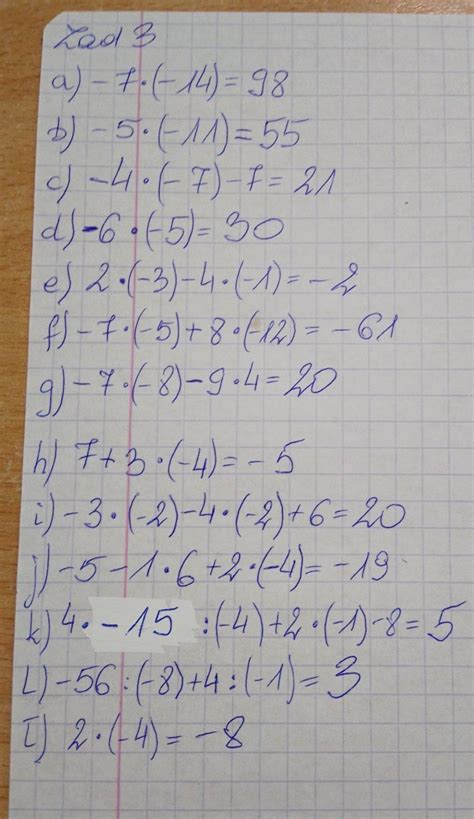 Zad 3
a) -7·(-14)=98
b) -5·(-11)=55
c) -4·(-7)-7=21
d) -6·(-5)=30
e) 2·(-3)-4·(-1)=-2
f) -7·(-5)+8·(-12)=-61
g) -7·(-8)-9·4=20
h) 7+3·(-4)=-5
i) -3·(-2)-4·(-2)+6=20
j) -5-1·6+2·(-4)=-19
k) 4·-15:(-4)+2·(-1)-8=5
l) -56:(-8)+4:(-1)=3
ł) 2·(-4)=-8